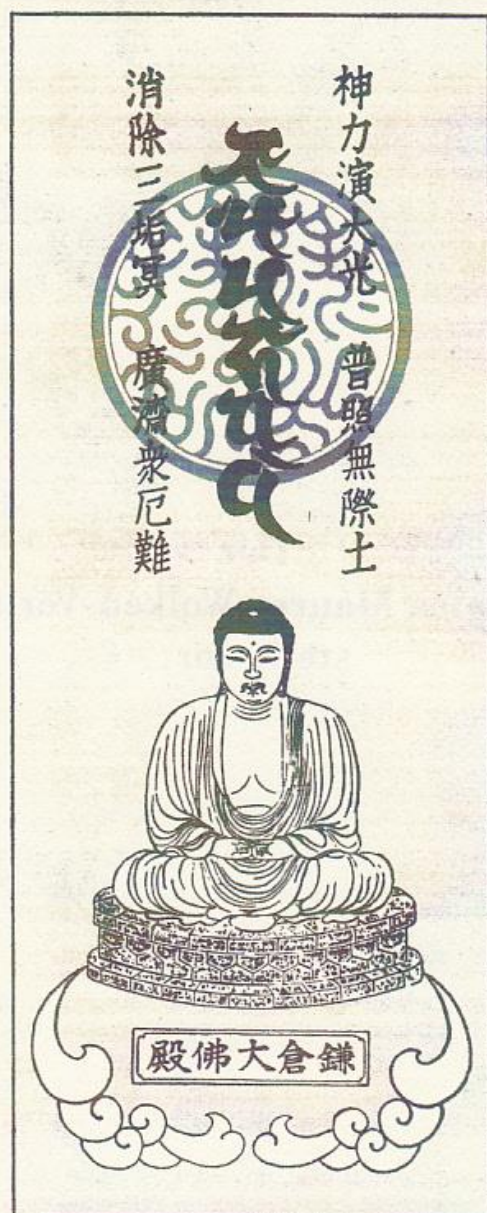 神力演大光　普照無際土
消除三垢冥　廣濟衆厄難
鎌倉大佛殿